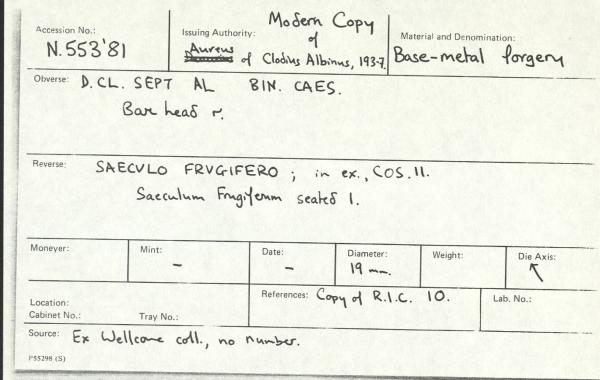 Accession No.:
N.553'81
Issuing Authority:
Modern Copy
of
Aureus of Clodius Albinus, 193-7.
Material and Denomination:
Base-metal forgery
Obverse: D.CL. SEPT AL BIN. CAES.
Bare head r.
Reverse: SAECVLO FRVGIFERO ; in ex., COS.II.
Saeculum Frugiferum seated l.
Moneyer:
Mint:
–
Date:
–
Diameter:
19 mm.
Weight:
Die Axis:
↖
Location:
Cabinet No.: Tray No.:
References: Copy of R.I.C. 10.
Lab. No.:
Source: Ex Wellcome coll., no number.
P55298 (S)